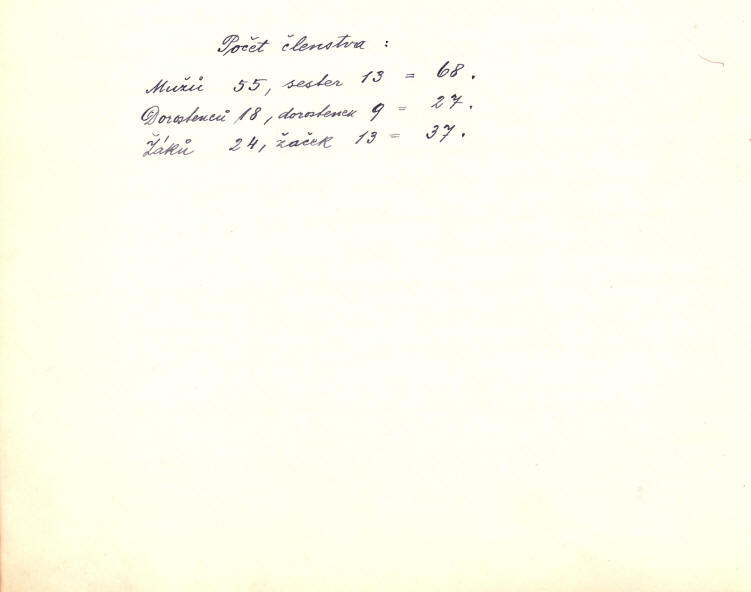 Počet členstva :
Mužů 55, sester 13 = 68.
Dorostenců 18, dorostenek 9 = 27.
Žáků 24, žaček 13 = 37.